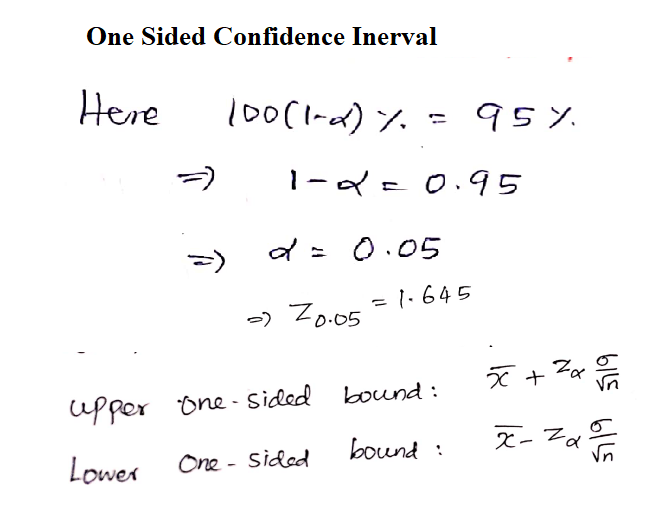 One Sided Confidence Inerval
Here 100(1-α) % = 95 %.
=) 1-α = 0.95
=) α = 0.05
=) Z0.05 = 1.645
upper one-sided bound: x̄ + Zα σ/√n
Lower One-sided bound: x̄ - Zα σ/√n